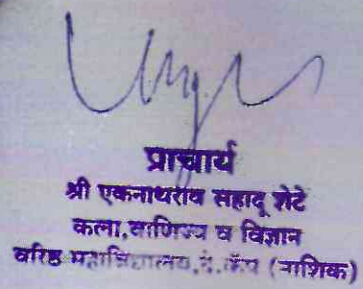 प्राचार्य
श्री एकनाथराव सहादू शेटे
कला,वाणिज्य व विज्ञान
वरिष्ठ महाविद्यालय,दे.कॅंप (नाशिक)